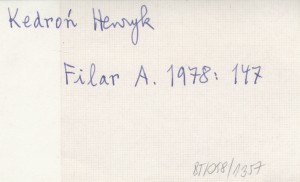 Kedroń Henryk
Filar A. 1978: 147
BT/058/1357